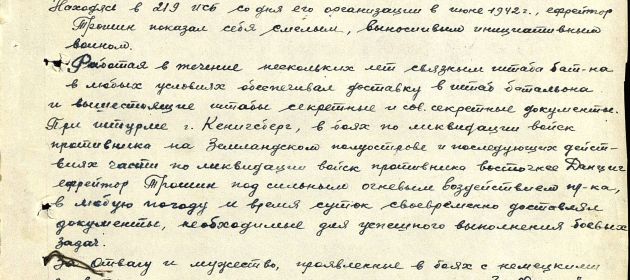 Находясь в 219 исб со дня его организации в июне 1942 г., ефрейтор
Трошин показал себя смелым, выносливым инициативным
воином.
Работая в течение нескольких лет связным штаба бат-на
в любых условиях обеспечивал доставку в штаб батальона
и вышестоящие штабы секретные и сов. секретные документы.
При штурме г. Кенигсберг, в боях по ликвидации войск
противника на Земландском полуострове и последующих дейст-
виях части по ликвидации войск противника восточнее Данциг
ефрейтор Трошин под сильным огневым воздействием пр-ка,
в любую погоду и время суток своевременно доставлял
документы, необходимые для успешного выполнения боевых
задач.
За отвагу и мужество, проявленные в боях с немецкими